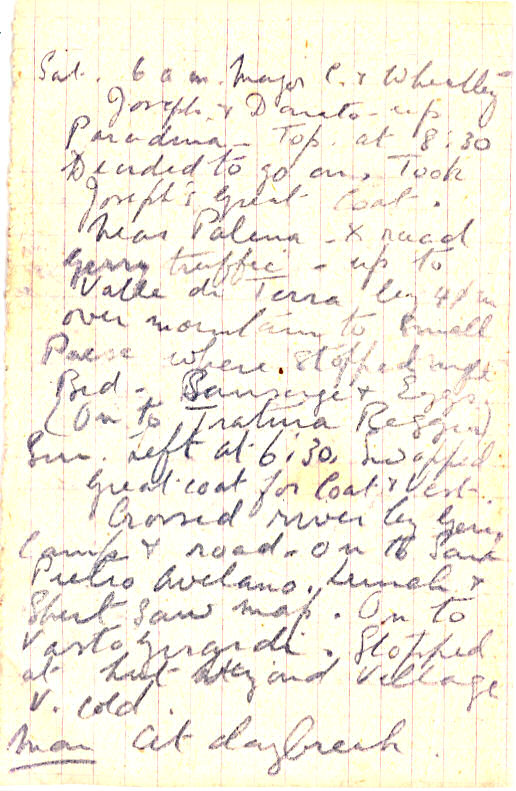 Sat. 6 a.m. Major C. & Wheatley
Joseph & Donato - up
Top. at 8.30
Decided to go on. Took
Joseph's Great Coat.
Near Palena - X road
Gerry traffic - up to
Valle di Terra by 4 p.m
over mountain to Small
Paese where stopped night
Bed - Sausage & Eggs.
(On to Fratura
Sun. Left at 6:30, Swapped
great coat for Coat & Vest.
Crossed river by Gerry
Camp & road - On to San
Pietro Avelano. Lunch &
Shirt Saw map. On to
Vastogirardi. Stopped
at hut beyond Village
V. cold.
Mon At daybreak.